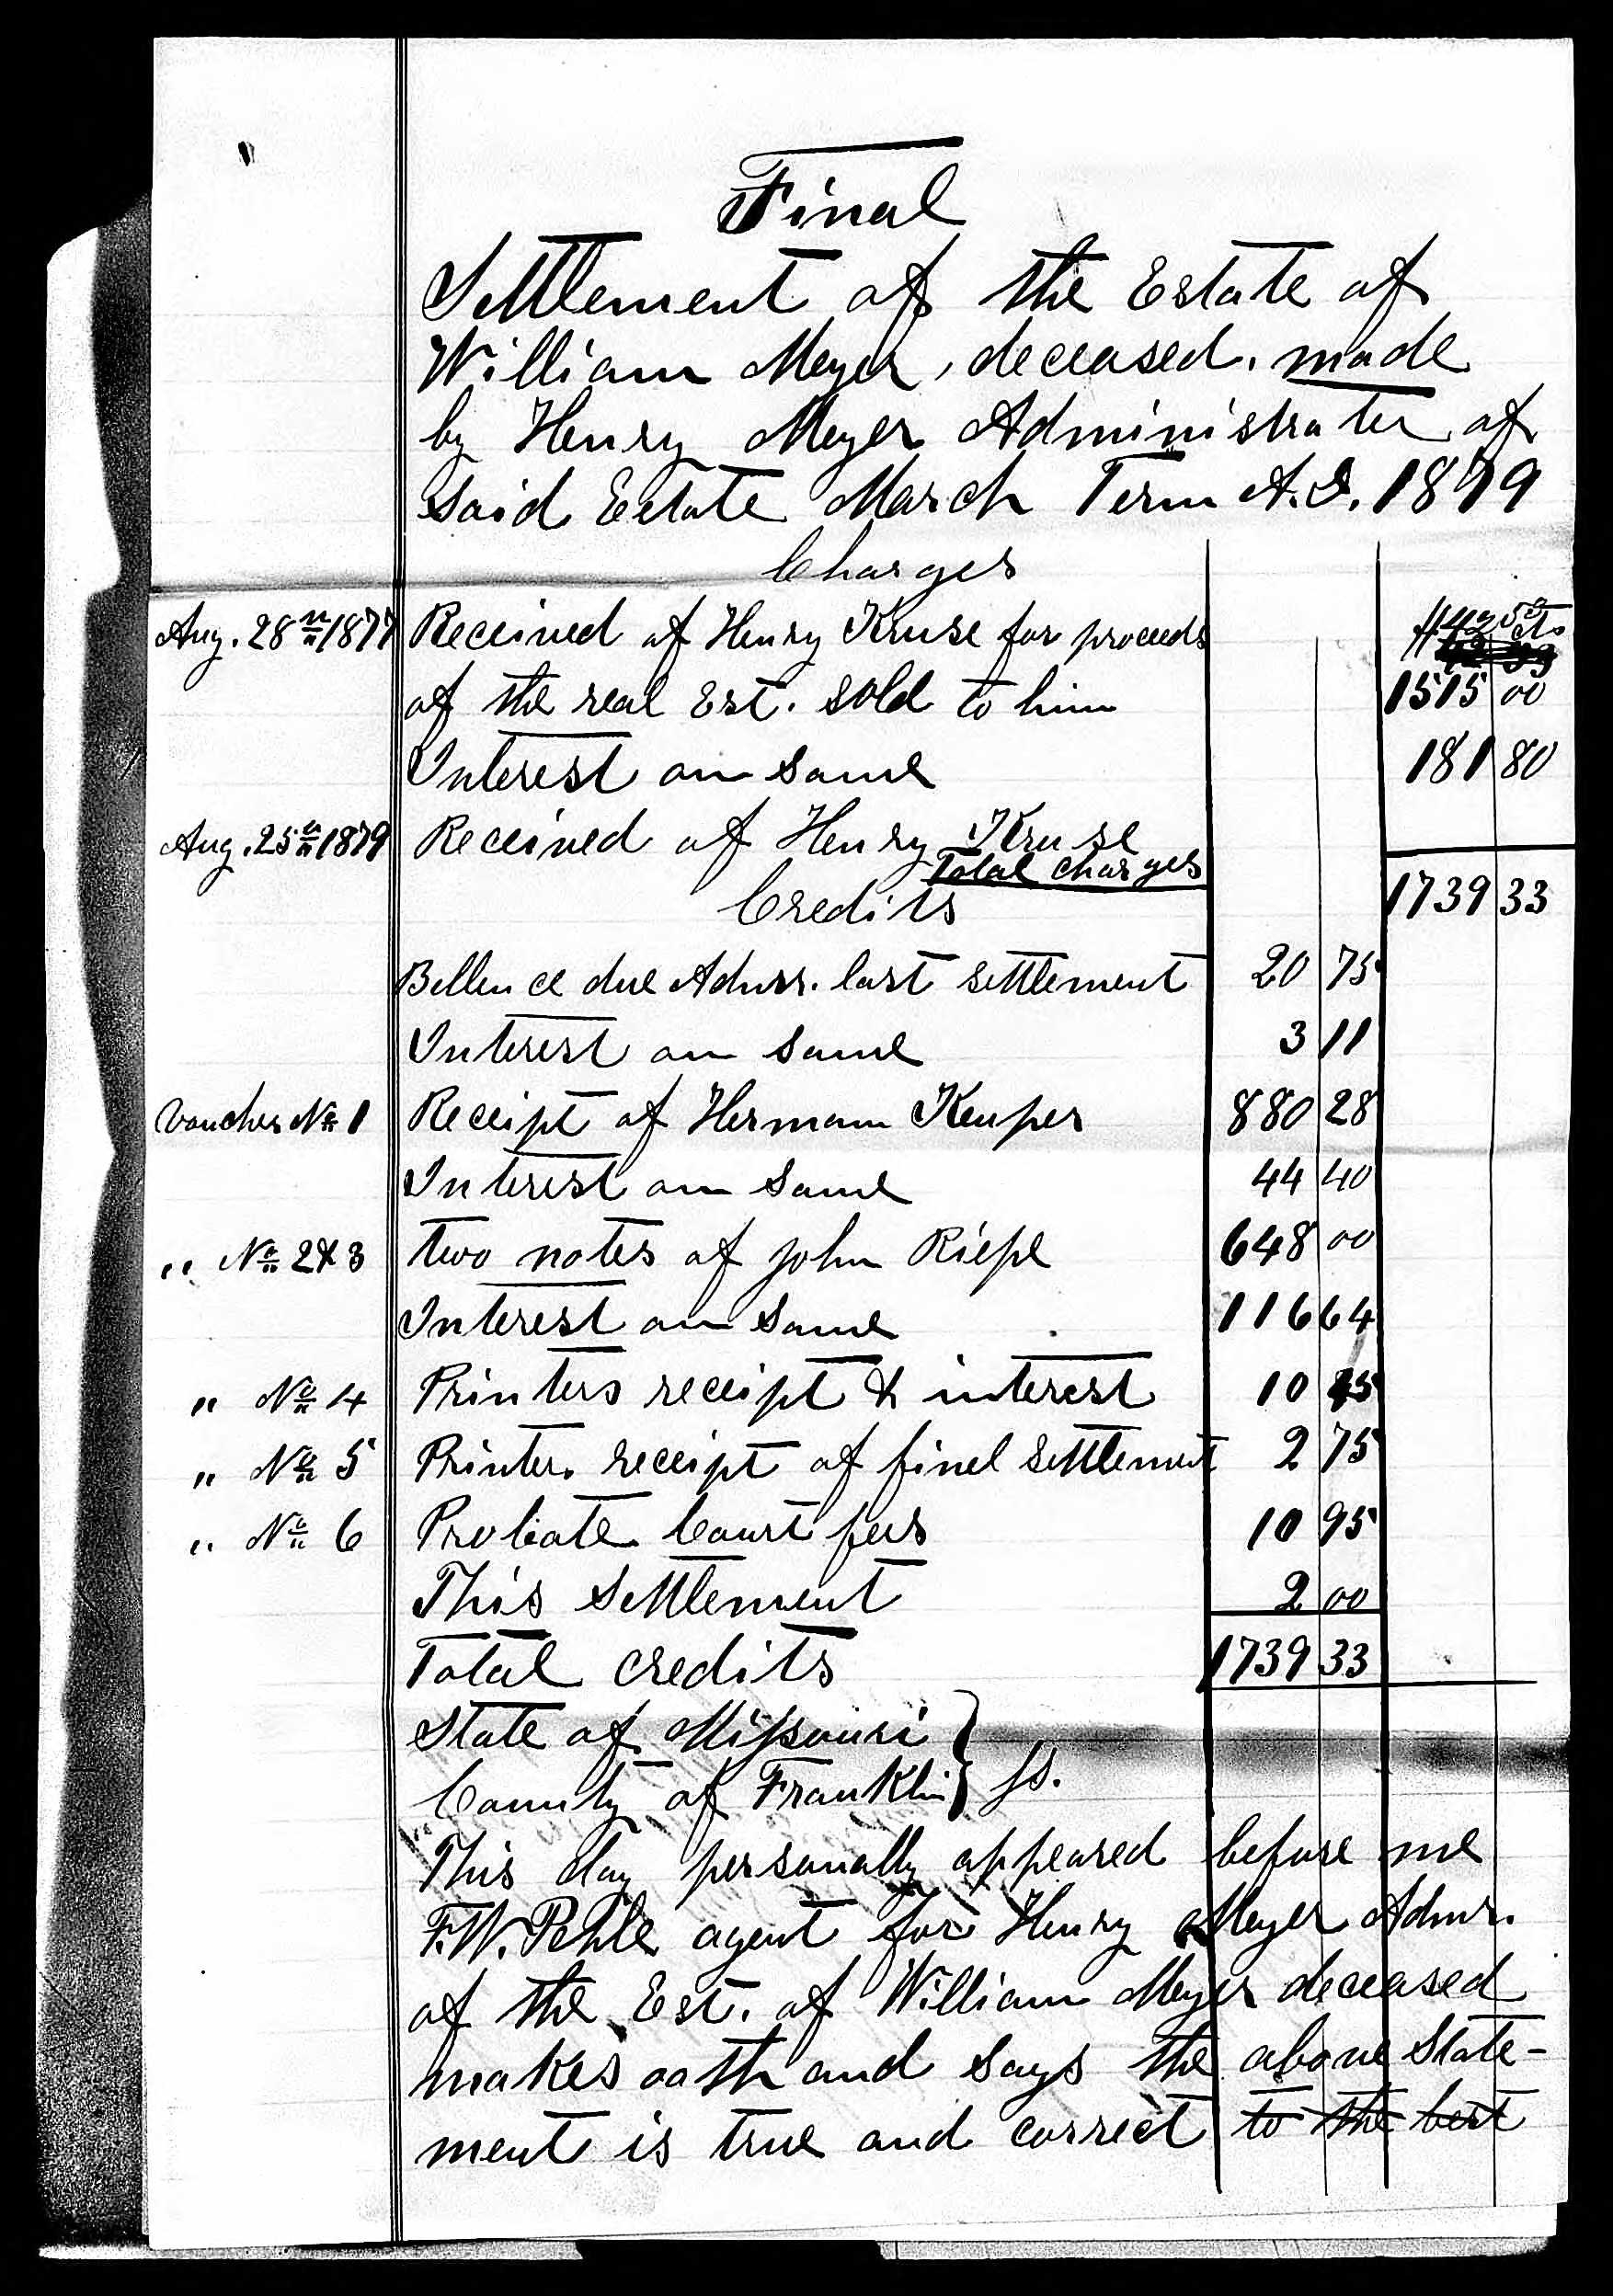 Final
Settlement of the Estate of
William Meyer, deceased. made
by Henry Meyer Administrater of
said Estate March Term A.D. 1879
Charges
Aug. 28th 1877 Received of Henry Kruse for proceeds
of the real Est. sold to him 1515 00
Interest on same 181 80
Aug. 25th 1879 Received of Henry Kruse
Total charges 1739 33
Credits
Bellence due Admr. last settlement 20 75
Interest on same 3 11
Voucher No 1 Receipt of Hermann Keuper 880 28
Interest on same 44 40
" No 2 & 3 two notes of John Riepe 648 00
Interest on same 116 64
" No 4 Printers receipt & interest 10 45
" No 5 Printer. receipt of finel settlement 2 75
" No 6 Probate Court fees 10 95
This settlement 2 00
Total credits 1739 33
State of Missouri }
County of Franklin } ss.
This day personally appeared before me
F.W. Pehle agent for Henry Meyer Admr.
of the Est. of William Meyer deceased
makes oath and says the above state-
ment is true and correct to the best